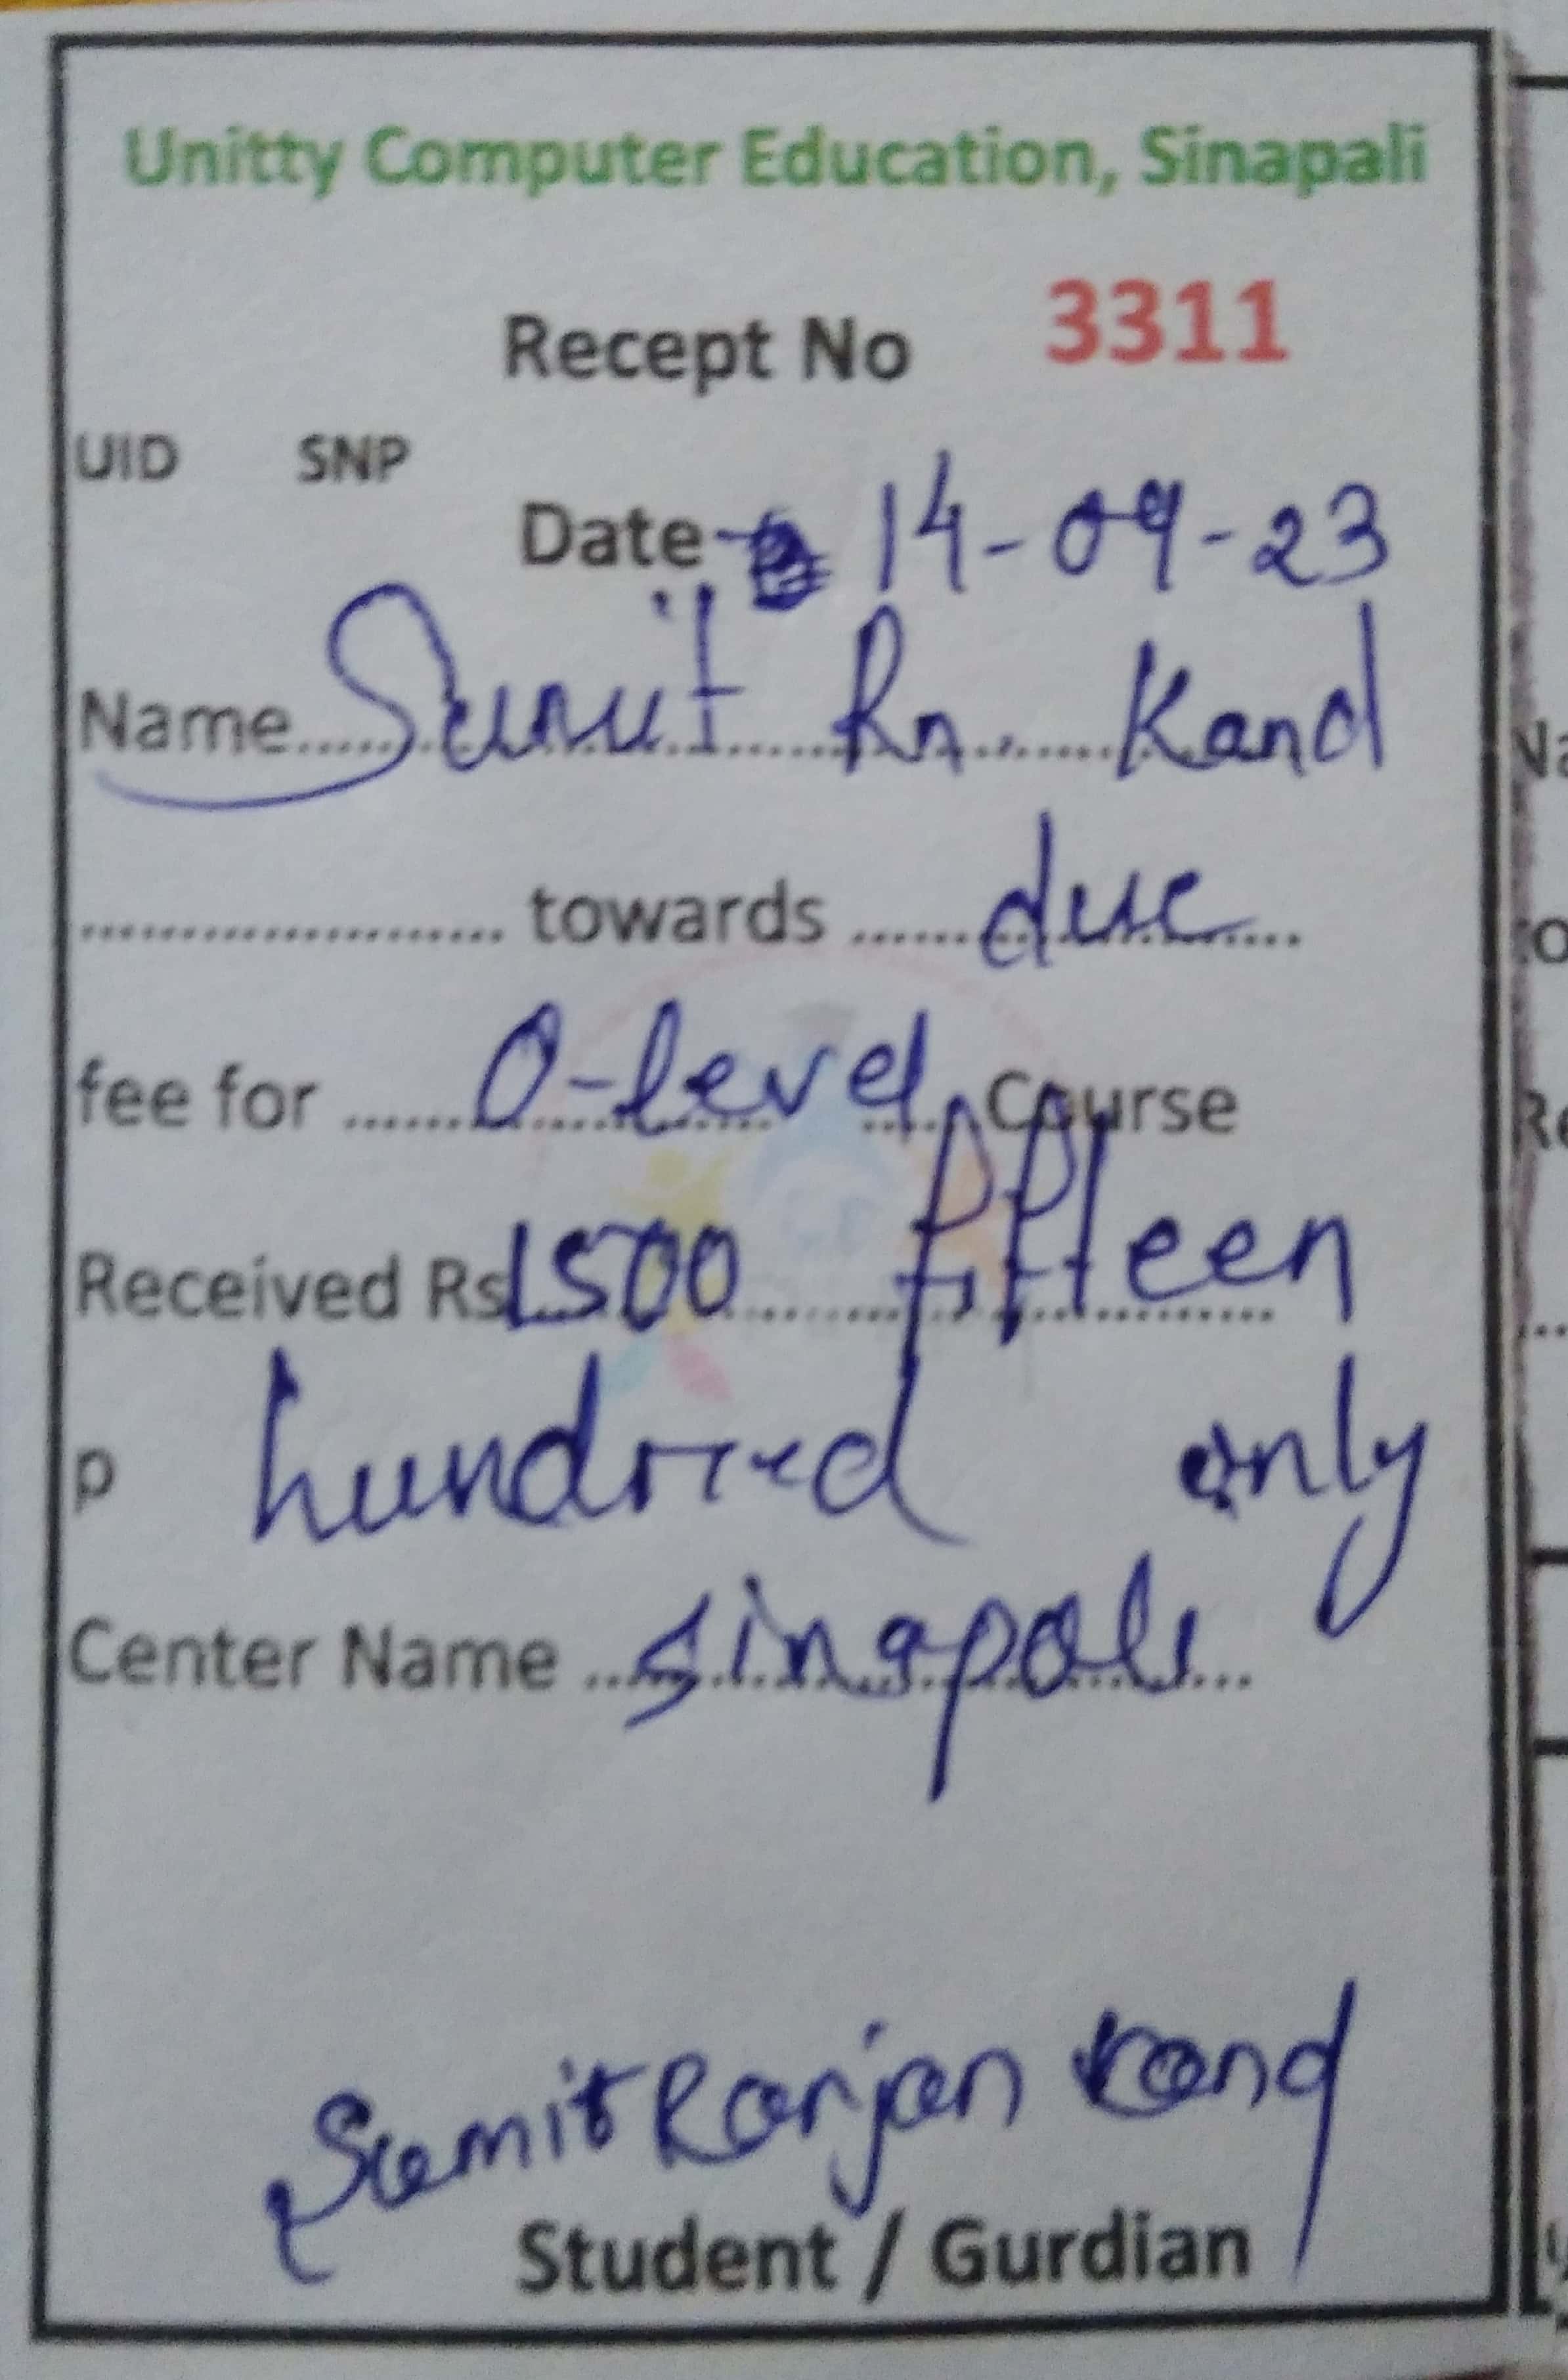 Unitty Computer Education, Sinapali
Recept No 3311
UID SNP
Date 14-09-23
Name Sumit Rn. Kand
towards due
fee for O-level Course
Received Rs 1500 fifteen
p hundred only
Center Name sinapali
Sumit Ranjan Kand
Student / Gurdian